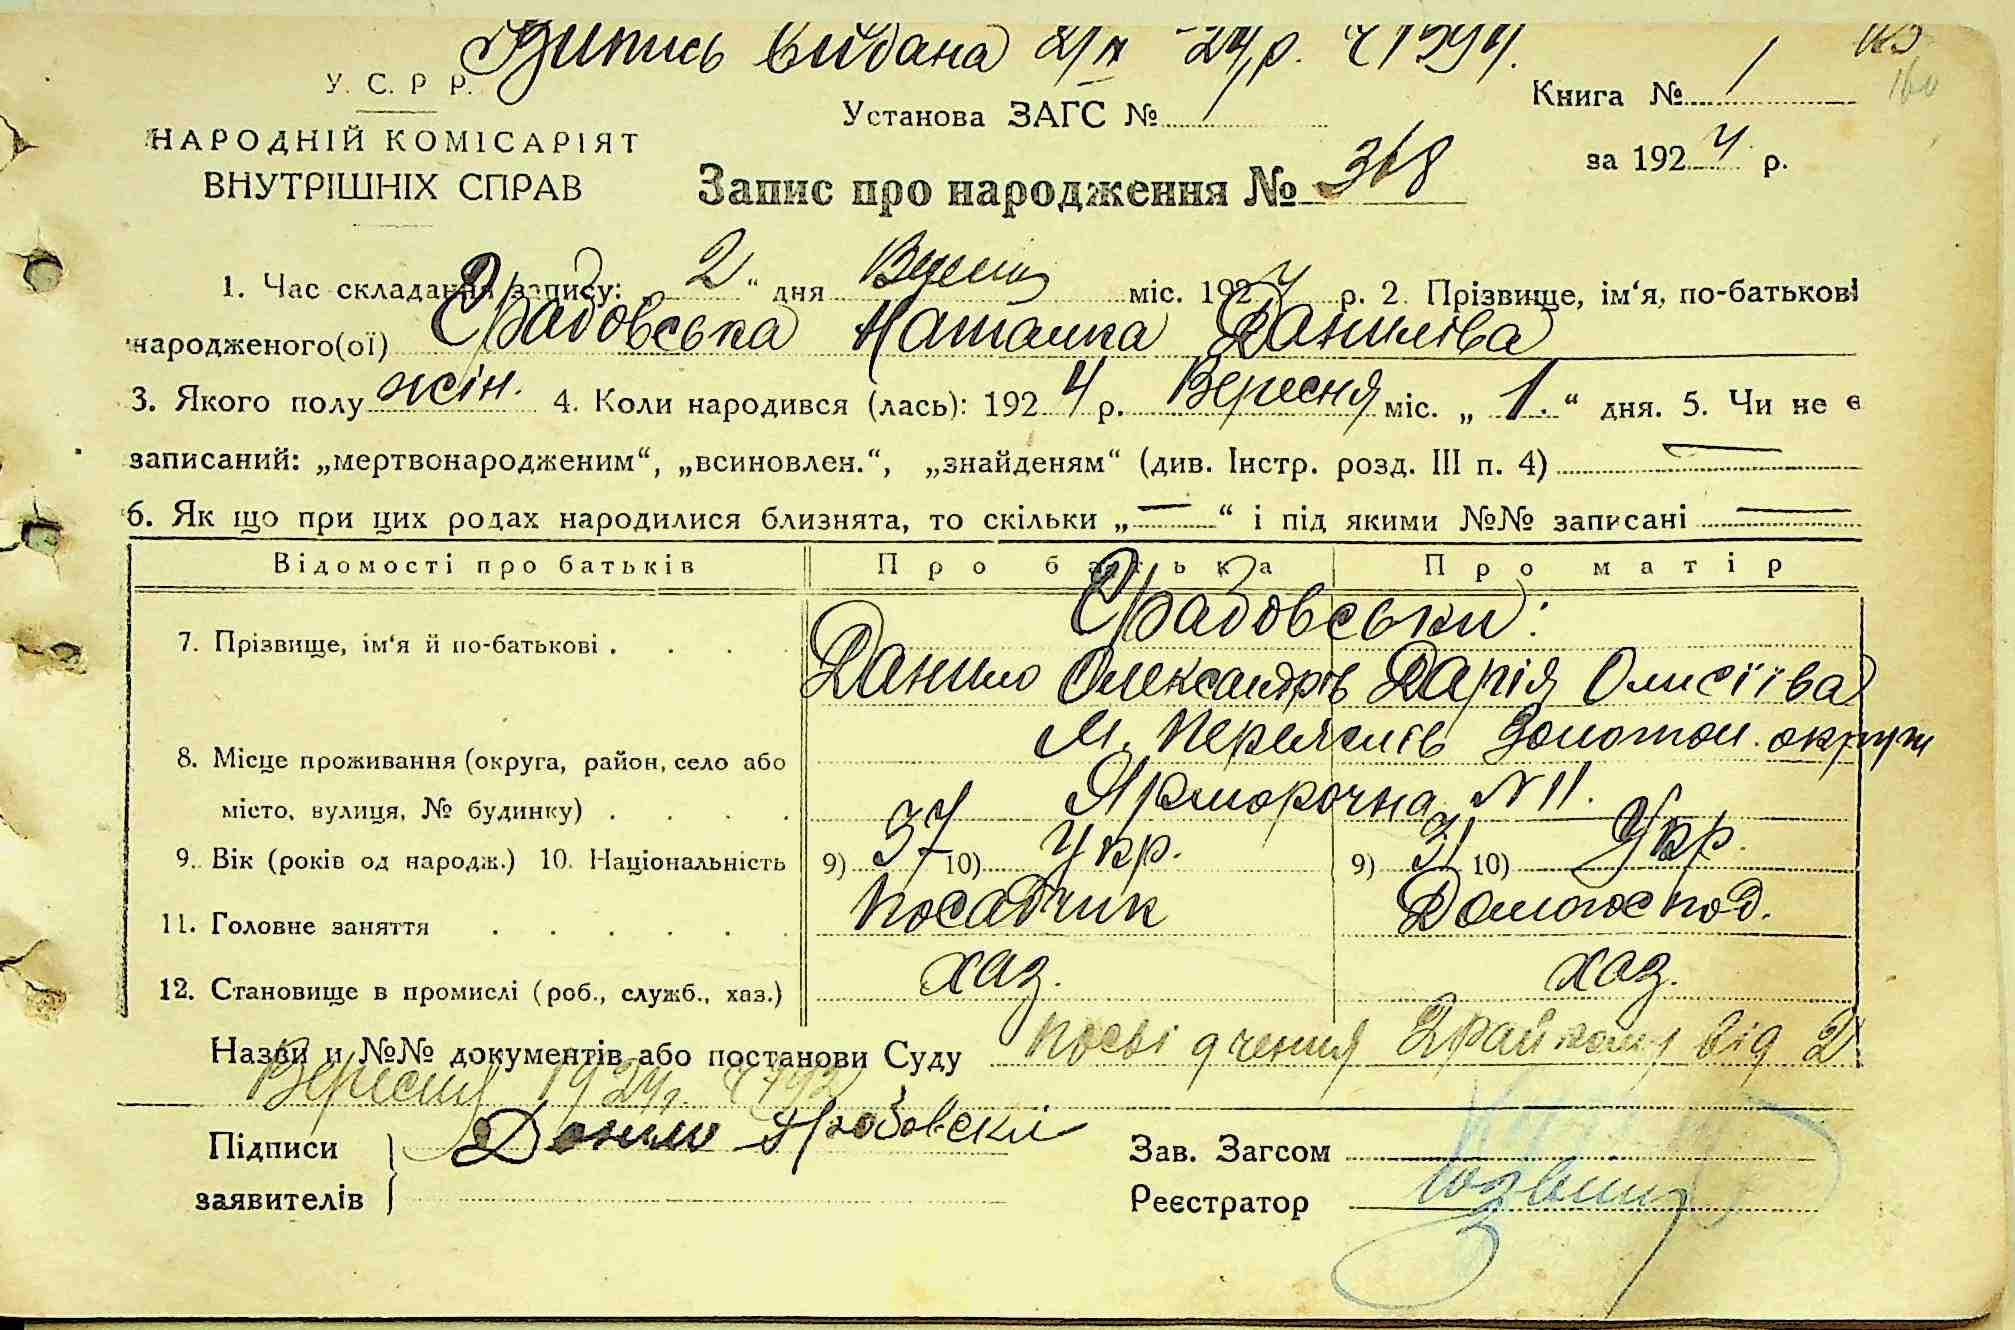 Випись видана 2/IX -24 р. Ч 1394.
У. С. Р. Р.
Установа ЗАГС № 1
Книга № 1
НАРОДНІЙ КОМІСАРІЯТ
ВНУТРІШНІХ СПРАВ
за 1924 р.
Запис про народження № 318
1. Час складання запису: „2“ дня Вересня міс. 1924 р. 2. Прізвище, ім‘я, по-батькові
народженого(ої) Грабовська Наталка Данилова
3. Якого полу жін. 4. Коли народився (лась): 1924 р. Вересня міс. „1.“ дня. 5. Чи не є
записаний: „мертвонародженим“, „всиновлен.“, „знайденям“ (див. Інстр. розд. III п. 4) —
6. Як що при цих родах народилися близнята, то скільки „—“ і під якими №№ записані —
Відомості про батьків Про батька Про матір
Грабовськи:
7. Прізвище, ім‘я й по-батькові . . . . Данило Олександрів Дарія Олисіїва
м. Переяслів Золотон. округи
8. Місце проживання (округа, район, село або
місто, вулиця, № будинку) . . . . Ярморочна N 11.
9. Вік (років од народж.) 10. Національність 9) 37 10) Укр. 9) 31 10) Укр.
11. Головне заняття . . . . . . Посадчик Домогоспод.
12. Становище в промислі (роб., служб., хаз.) хаз. хаз.
Назви и №№ документів або постанови Суду посвідчення Райкому від 2
Вересня 1924 р.
Підписи
заявителів
Данило Грабовскі
Зав. Загсом
Реєстратор